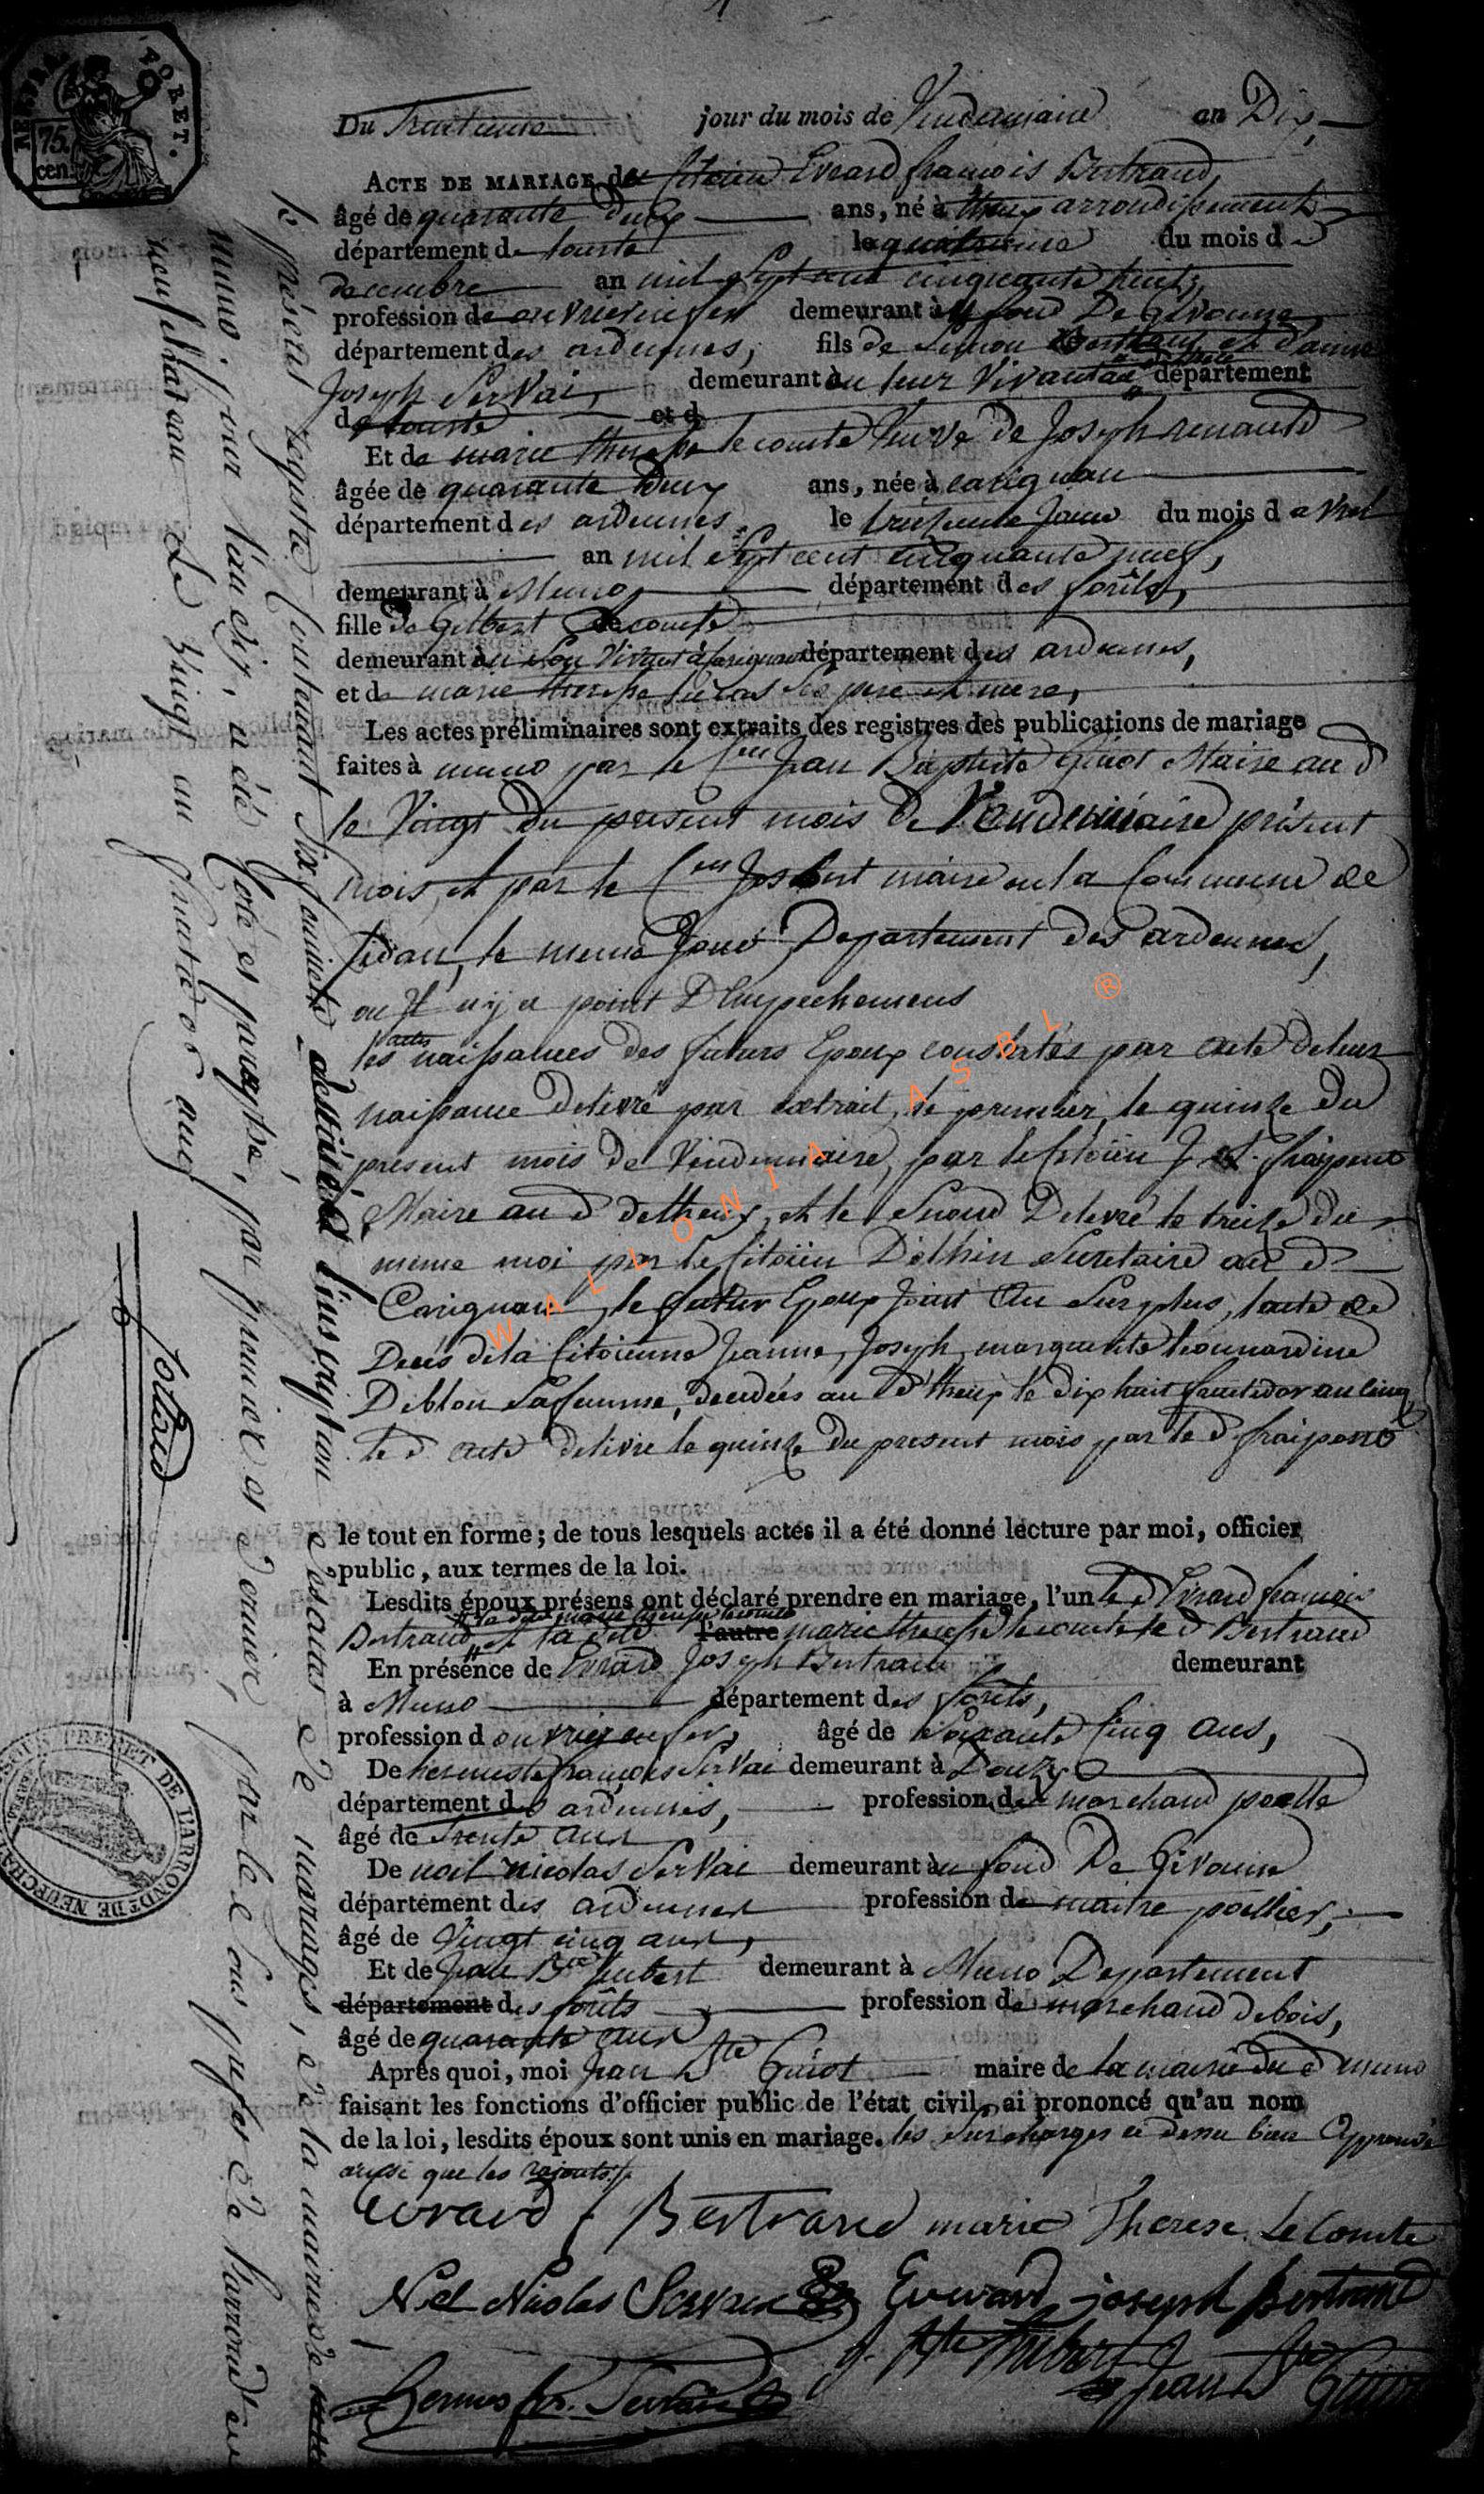 Du Trentieme jour du mois de Vendemiaire an Dix,
ACTE DE MARIAGE du Citoien Evrard françois Bertrand,
âgé de quarante Deux ans, né à theux arrondissement
département de lourte le quatrieme du mois d
decembre an mil Sept cent cinquante huit,
profession de ouvrier en fer demeurant à fond De Givonne,
département des ardennes, fils de Simon Bertrand et d'anne
Joseph Servai, demeurant à en leur Vivant au département
de lourte et d
Et de marie therese le comte Veuve de Joseph renaud
âgée de quarante Deux ans, née à carignan
département des ardennes, le treizieme Jour du mois d avril
an mil Sept cent cinquante neuf,
demeurant à Muno, département des forêts,
fille de Gilbert le comte
demeurant à en Son Vivant à Carignan département des ardennes,
et de marie therese Ses pere et mere,
Les actes préliminaires sont extraits des registres des publications de mariage
faites à muno par le Cen Jean Baptiste Guiot Maire au d
le Vingt Du present mois De Vendemiaire présent
mois, et par le Cen maire en la Commune de
Sedan, le meme Jour Departement des ardennes,
ou Il n'y a point D'Empechemens
les actes naissances des futurs Epoux constatés par acte de leur
naissance delivré par extrait, le premier, le quinze du
present mois de Vendemiaire, par le Citoïen J fraipont
Maire au d de theux, et le Second Delivré le treize du
meme moi par le Citoïen Delhin Secretaire au d
Carignan, le futur Epoux Joint Au Surplus, l'acte de
Decés de la Citoienne Jeanne, Joseph, marguerite leonnardine
Deblon Sa femme, decedées au d theux le dix huit fructidor an cinq
le d acte delivré le quinze du present mois par le d fraipont
le tout en forme; de tous lesquels actes il a été donné lecture par moi, officier
public, aux termes de la loi.
Lesdits époux présens ont déclaré prendre en mariage, l'un le d Evrard françois
la dite marie therese lecomte
Bertrand, et la dite l'autre marie therese le comte le d Bertrand
En présence de Evrard Joseph Bertrand demeurant
à Muno département des forêts,
profession d ouvrier en fer, âgé de Soixante Cinq ans,
De françois Servai demeurant à Douzy
département des ardennes, profession de marchand poelle
âgé de Trente ans
De noel nicolas Servai demeurant à au fond De Givonne
département des ardennes profession de maitre poellier,
âgé de Vingt cinq ans,
Et de Jean Bte hubert demeurant à Muno Departement
département des forêts profession de marchand de bois,
âgé de quarante ans
Après quoi, moi Jean Bte Guiot maire de la mairie du d muno
faisant les fonctions d'officier public de l'état civil, ai prononcé qu'au nom
de la loi, lesdits époux sont unis en mariage. les Surcharges ci dessu bien Approuvé
aussi que les rajouts
Evrard f Bertrand marie Therese Le Comte
Nel Nicolas Servais Evrard joseph Bertrand
J. Bte hubert Jean Bte Guiot
fr. Servais
le présent registre Contenant Six feuillets destinés à l'inscription des actes de mariages, de la mairie de
muno, pour l'an dix, a été Coté et paraphé, par premier et dernier, par le Sous préfet de l'arrondt de
neufchateau Le Vingt un fructidor an 9
Collard
75 cen.
SOUS PREFET DE L'ARRONDT DE NEUFCHATEAU
WALLONIA ASBL ®